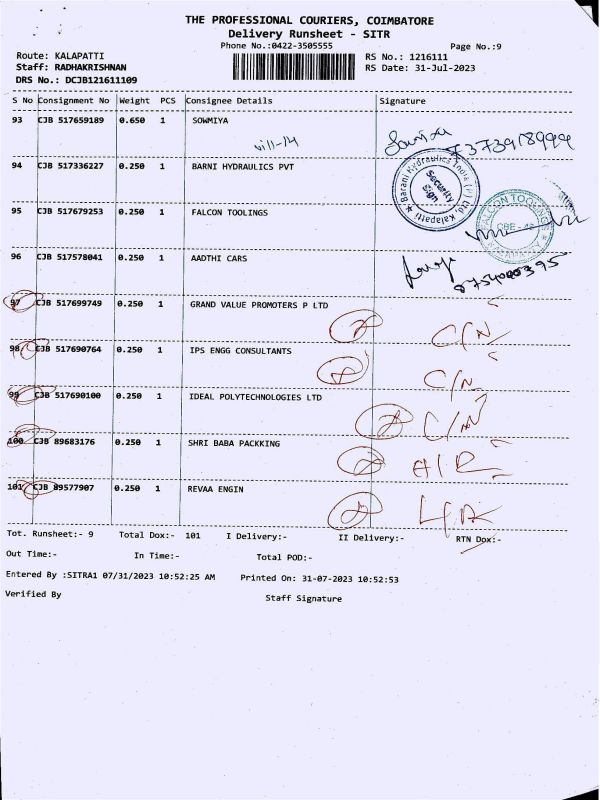 THE PROFESSIONAL COURIERS, COIMBATORE
Delivery Runsheet - SITR
Phone No.:0422-3505555
Page No.:9
Route: KALAPATTI
RS No.: 1216111
Staff: RADHAKRISHNAN
RS Date: 31-Jul-2023
DRS No.: DCJB121611109
S No Consignment No Weight PCS Consignee Details Signature
93 CJB 517659189 0.650 1 SOWMIYA
94 CJB 517336227 0.250 1 BARNI HYDRAULICS PVT
Barani Hydraulics India (P) Ltd. Kalapatti
Security Sign
95 CJB 517679253 0.250 1 FALCON TOOLINGS
FALCON TOOLINGS
96 CJB 517578041 0.250 1 AADTHI CARS
97 CJB 517699749 0.250 1 GRAND VALUE PROMOTERS P LTD
C/N
98 CJB 517690764 0.250 1 IPS ENGG CONSULTANTS
C/N
99 CJB 517690100 0.250 1 IDEAL POLYTECHNOLOGIES LTD
C/N
100 CJB 89683176 0.250 1 SHRI BABA PACKKING
101 CJB 89577907 0.250 1 REVAA ENGIN
Tot. Runsheet:- 9 Total Dox:- 101 I Delivery:- II Delivery:- RTN Dox:-
Out Time:- In Time:- Total POD:-
Entered By :SITRA1 07/31/2023 10:52:25 AM Printed On: 31-07-2023 10:52:53
Verified By Staff Signature